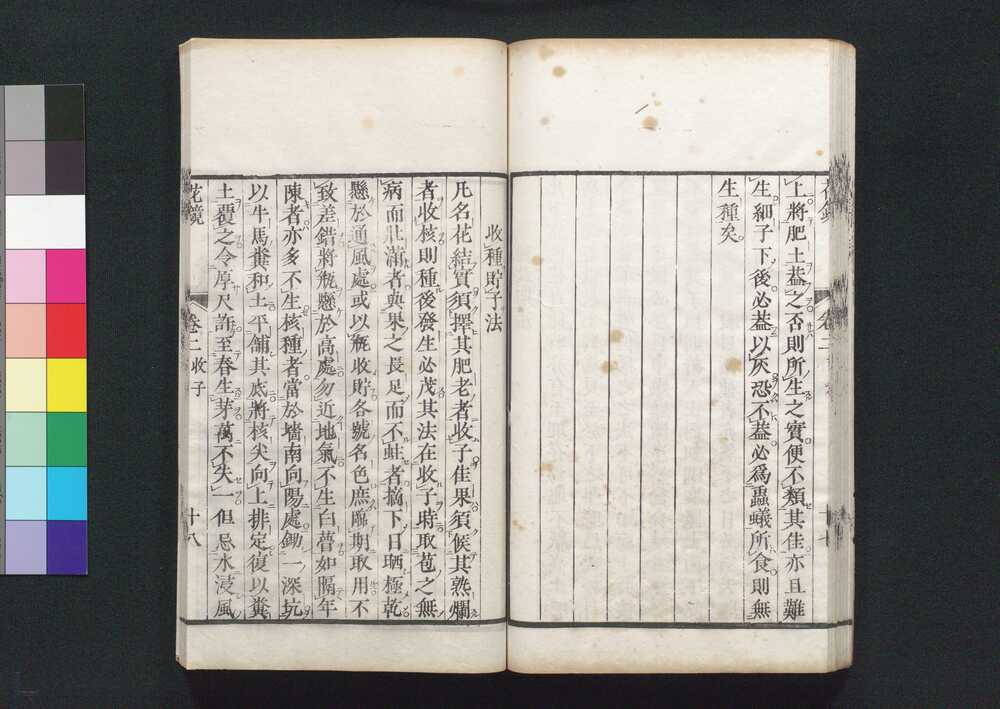 上將肥土葢之否則所生之實便不類其佳亦且難
生細子下後必葢以灰恐不葢必爲蟲蟻所食則無
生種矣
收種貯子法
凡名花結實須擇其肥老者收子佳果須候其熟爛
者收核則種後發生必茂其法在收子時取苞之無
病而壯滿者與果之長足而不蛀者摘下日晒極乾
懸於通風處或以瓶收貯各號名色庶臨期取用不
致差錯將瓶懸於高處勿近地氣不生白瞢如隔年
陳者亦多不生核種者當於墻南向陽處鋤一深坑
以牛馬糞和土平舖其底將核尖向上排定復以糞
土覆之令厚尺許至春生芽萬不失一但忌水浸風
花鏡
卷二
收子
十八